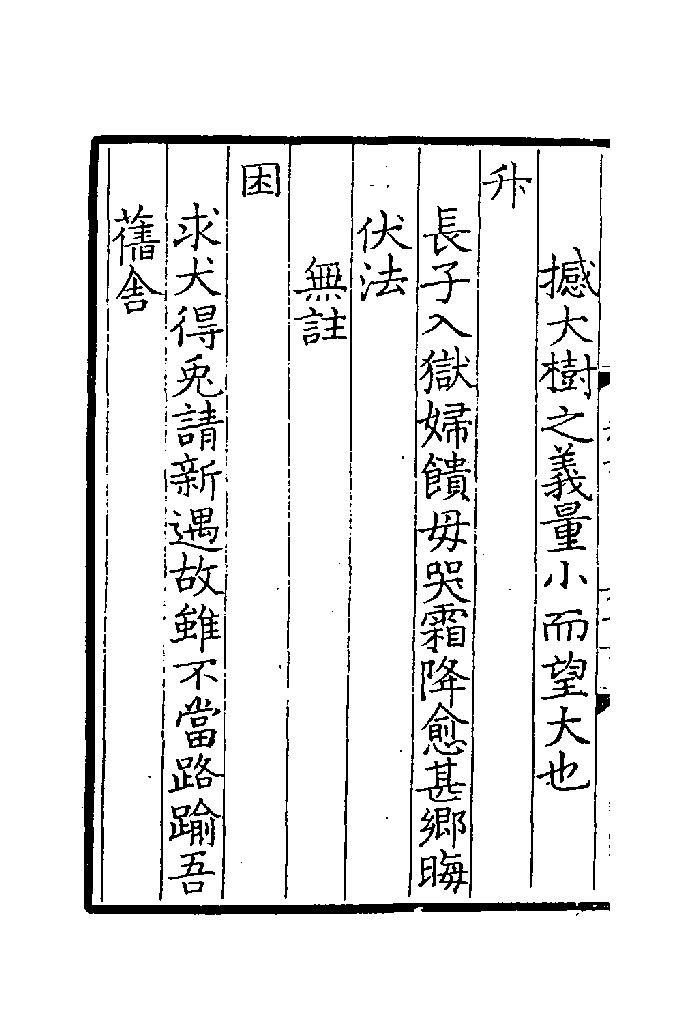 撼大樹之義量小而望大也
升
長子入獄婦饋母哭霜降愈甚鄉晦
伏法
無註
困
求犬得兎請新遇故雖不當路踰吾
舊舍